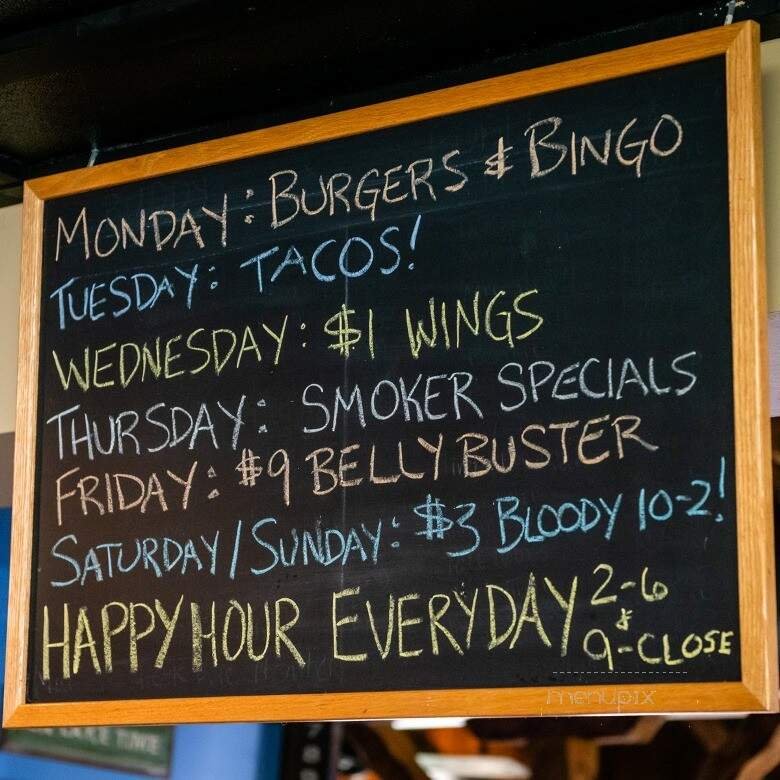 MONDAY: BURGERS & BINGO
TUESDAY: TACOS!
WEDNESDAY: $1 WINGS
THURSDAY: SMOKER SPECIALS
FRIDAY: $9 BELLY BUSTER
SATURDAY/SUNDAY: $3 BLOODY 10-2!
HAPPY HOUR EVERYDAY 2-6
& 9-CLOSE
menupix